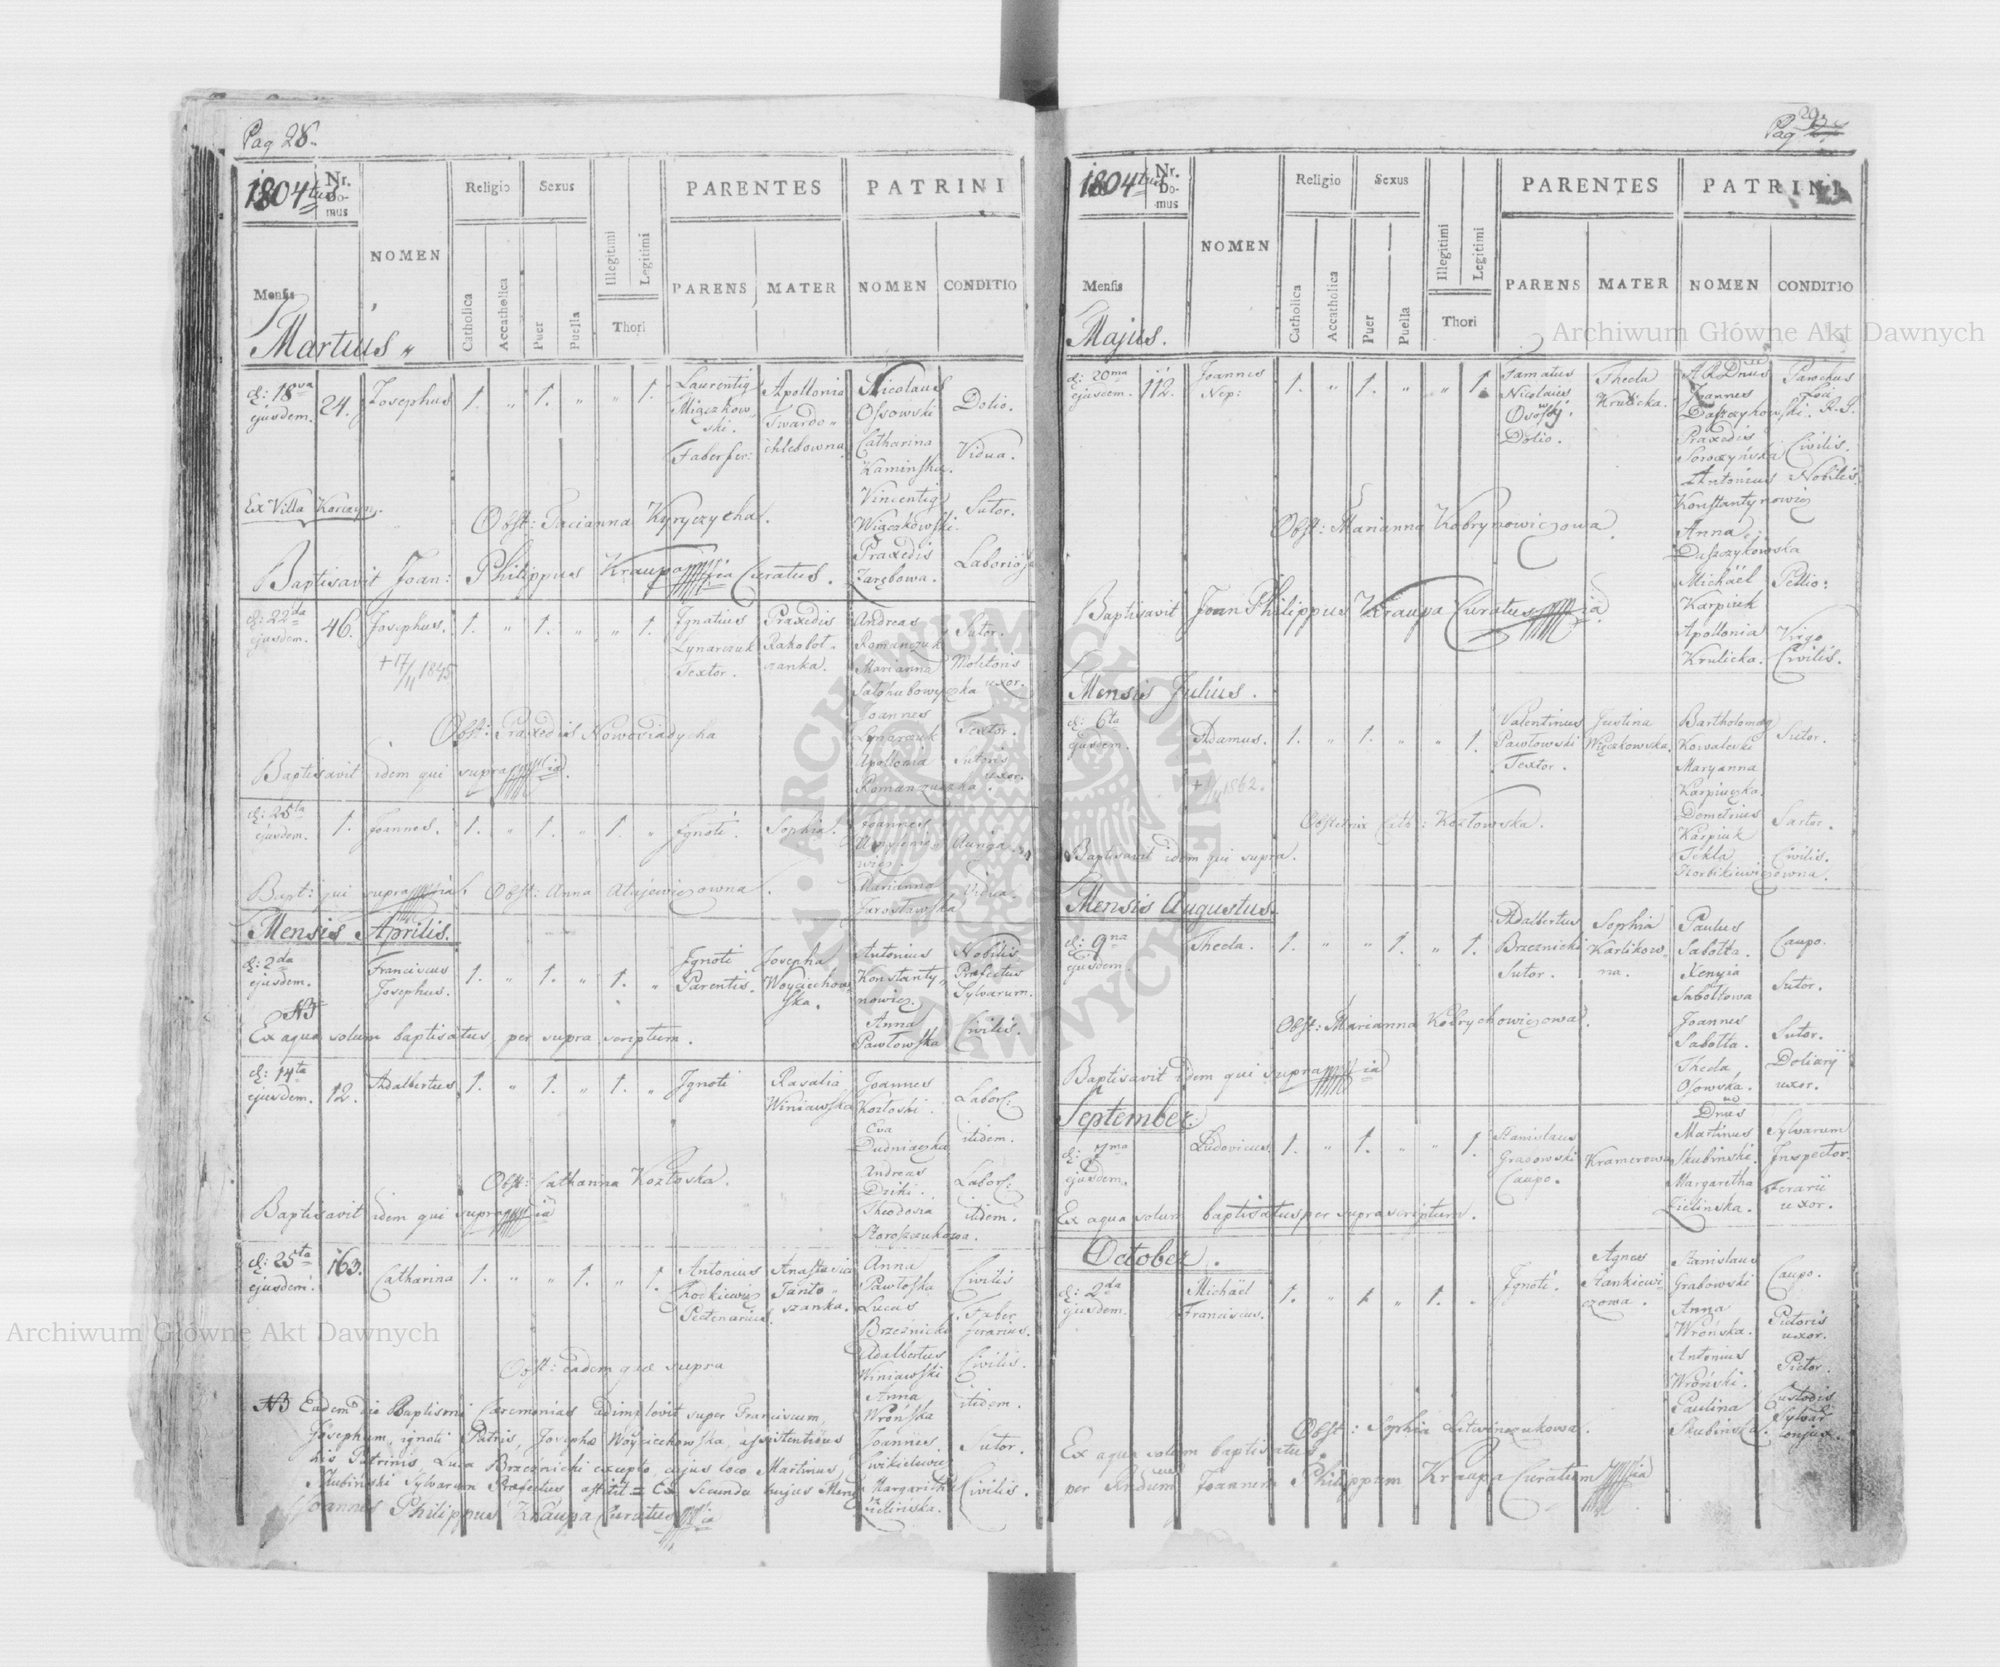 Pag 28.
1804tus
Nr. Domus
NOMEN
Religio
Sexus
Catholica
Accatholica
Puer
Puella
Illegitimi
Legitimi
Thori
PARENTES
PATRINI
PARENS
MATER
NOMEN
CONDITIO
Mensis
Martius
d: 18va ejusdem. 24. Josephus 1. " 1. " " 1.
Laurentig Miączkowski. Faberfer:
Apollonia Twardochlebowna
Nicolaus Ossowski Dolio.
Catharina Kaminska. Vidua.
Vincentig Wiączkowski. Sutor.
Praxedis Zarębowa. Laboriosa
Ex Villa Korczyn.
Obst: Tacianna Kyryczycha.
Baptisavit Joan: Philippus Kraupa Curatus.
d: 22da ejusdem. 46. Josephus. 1. " 1. " " 1.
+ 17/11 1845
Ignatius Lynarczuk Textor.
Praxedis
Andreas Romanczuk Sutor.
Marianna Molitoris uxor.
Joannes Lynarczuk Textor.
Apollonia Romanczuczka. Sutoris uxor.
Obst: Praxedis Nowosiadycha
Baptisavit idem qui supra
d: 25ta ejusdem. 1. Joannes. 1. " 1. " 1. "
Ignoti. Sophia.
Joannes
Marianna Jarosławska Vidua
Bapt: qui supra Obst: Anna
Mensis Aprilis.
d: 2da ejusdem. Franciscus Josephus. 1. " 1. " 1. "
Ignoti Parentis.
Josepha Woyciechowska.
Antonius Konstantynowicz. Nobilis Praefectus Sylvarum.
Anna Pawłowska Civilis.
NB
Ex aqua solum baptisatus, per supra scriptum.
d: 14ta ejusdem. 12. Adalbertus 1. " 1. " 1. "
Ignoti
Rosalia Winiawska
Joannes Kozłoski. Labors:
Eva Dudniaczka itidem.
Andreas Dziki. Labors:
Theodosia itidem.
Obst: Catharina Kozłoska.
Baptisavit idem qui supra
d: 25ta ejusdem. 163. Catharina 1. " " 1. " 1.
Antonius
Anastasia
Anna Pawłoska Civilis
Lucas Brzeznicki Faber ferarius.
Adalbertus Winiawski Civilis.
Anna Wrońska itidem.
Joannes Sutor.
Margaritha Zielinska. Civilis.
Obst: eadem quae supra
NB Eadem die Baptismi Caeremonias adimplevit super Franciscum,
Josephum, ignoti Patris, Josephae Woyciechowska, assistentibus
his Patrinis, Luca Brzeznicki excepto, cujus loco Martinus
Skubinski Sylvarum Praefectus astitit
Joannes Philippus Kraupa Curatus
Pag 29.
1804tus
Nr. Domus
NOMEN
Religio
Sexus
Catholica
Accatholica
Puer
Puella
Illegitimi
Legitimi
Thori
PARENTES
PATRINI
PARENS
MATER
NOMEN
CONDITIO
Mensis
Majus.
d: 20ma ejusdem. 112. Joannes Nep: 1. " 1. " " 1.
Famatus Nicolaus Dolio.
Thecla Krulicka.
Joannes Parochus Loci
Praxedis Civilis.
Antonius Konstantynowicz Nobilis.
Anna Daszczykowska
Michaël Karpiuk Pellio:
Apollonia Krulicka. Virgo Civilis.
Obst: Marianna Kobrynowiczowa.
Baptisavit Joan Philippus Kraupa Curatus
Mensis Julius.
d: 6ta ejusdem. Adamus. 1. " 1. " " 1.
1862.
Valentinus Pawłowski Textor.
Justina Więczkowska.
Bartholomæg Kowalecki Sutor.
Maryanna Karpiuczka.
Demetrius Karpiuk Sartor.
Tekla Civilis.
Obstetrix Cath: Kozłowska.
Baptisavit idem qui supra.
Mensis Augustus.
d: 9na ejusdem. Thecla. 1. " " 1. " 1.
Adalbertus Brzeznicki Sutor.
Sophia Karlikowna.
Paulus Sabołta. Caupo.
Xenyia Sabołtowa Sutor.
Joannes Sabołta. Sutor.
Thecla Osowska. Doliarij uxor.
Obst: Marianna Kobrychowiczowa.
Baptisavit idem qui supra
September.
d: 7ma ejusdem. Ludovicus. 1. " 1. " " 1.
Stanislaus Grabowski Caupo.
Kramerowna
Dnus Martinus Skubinski. Sylvarum Inspector.
Margaretha Zielinska. Ferarii uxor.
Ex aqua solum baptisatus per suprascriptum.
October.
d: 2da ejusdem. Michaël Franciscus. 1. " 1 " 1. "
Ignoti.
Agnes Stankiewiczowa.
Stanislaus Grabowski Caupo.
Anna Wrońska. Pictoris uxor.
Antonius Wroński. Pictor.
Paulina Skubinska. Custodis Sylvar conjux.
Obst: Sophia Litwinczukowa.
Ex aqua solum baptisatus.
per Rndum Joannem Philippum Kraupa Curatum
Archiwum Główne Akt Dawnych
Archiwum Główne Akt Dawnych